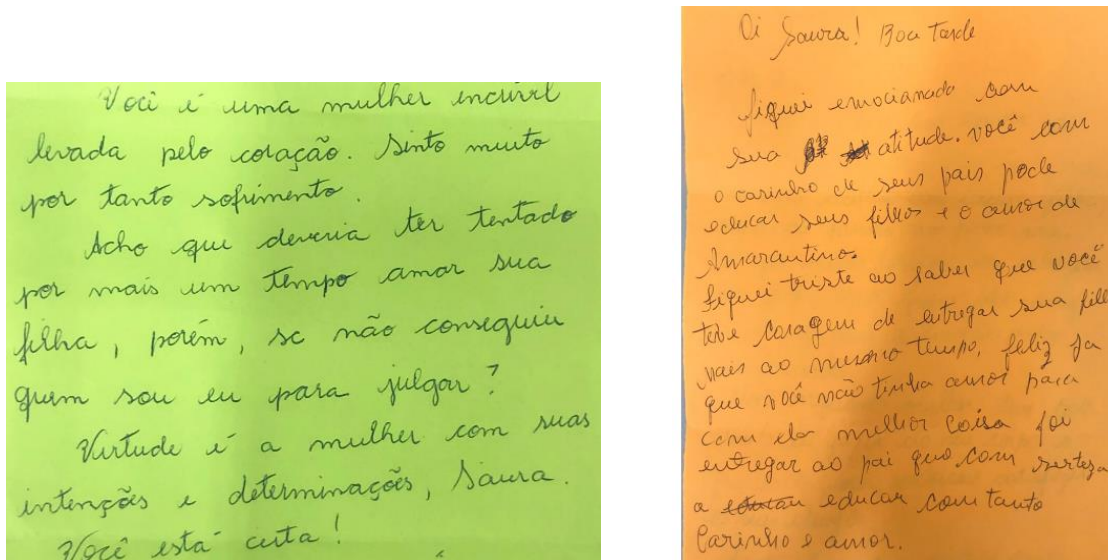 Você é uma mulher incrivel
levada pelo coração. Sinto muito
por tanto sofrimento.
Acho que deveria ter tentado
por mais um tempo amar sua
filha, porém, se não conseguiu
quem sou eu para julgar?
Virtude é a mulher com suas
intenções e determinações, Saura.
Você está certa!
Oi Saura! Boa Tarde
fiquei emocionada com
sua atitude. você com
o carinho de seus pais pode
educar seus filhos e o amor de
Amarantino.
fiquei triste ao saber que você
teve coragem de entregar sua
mais ao mesmo tempo, feliz ja
que você não tinha amor para
com ela melhor coisa foi
entregar ao pai que com serteza
a educar com tanto
Carinho e amor.